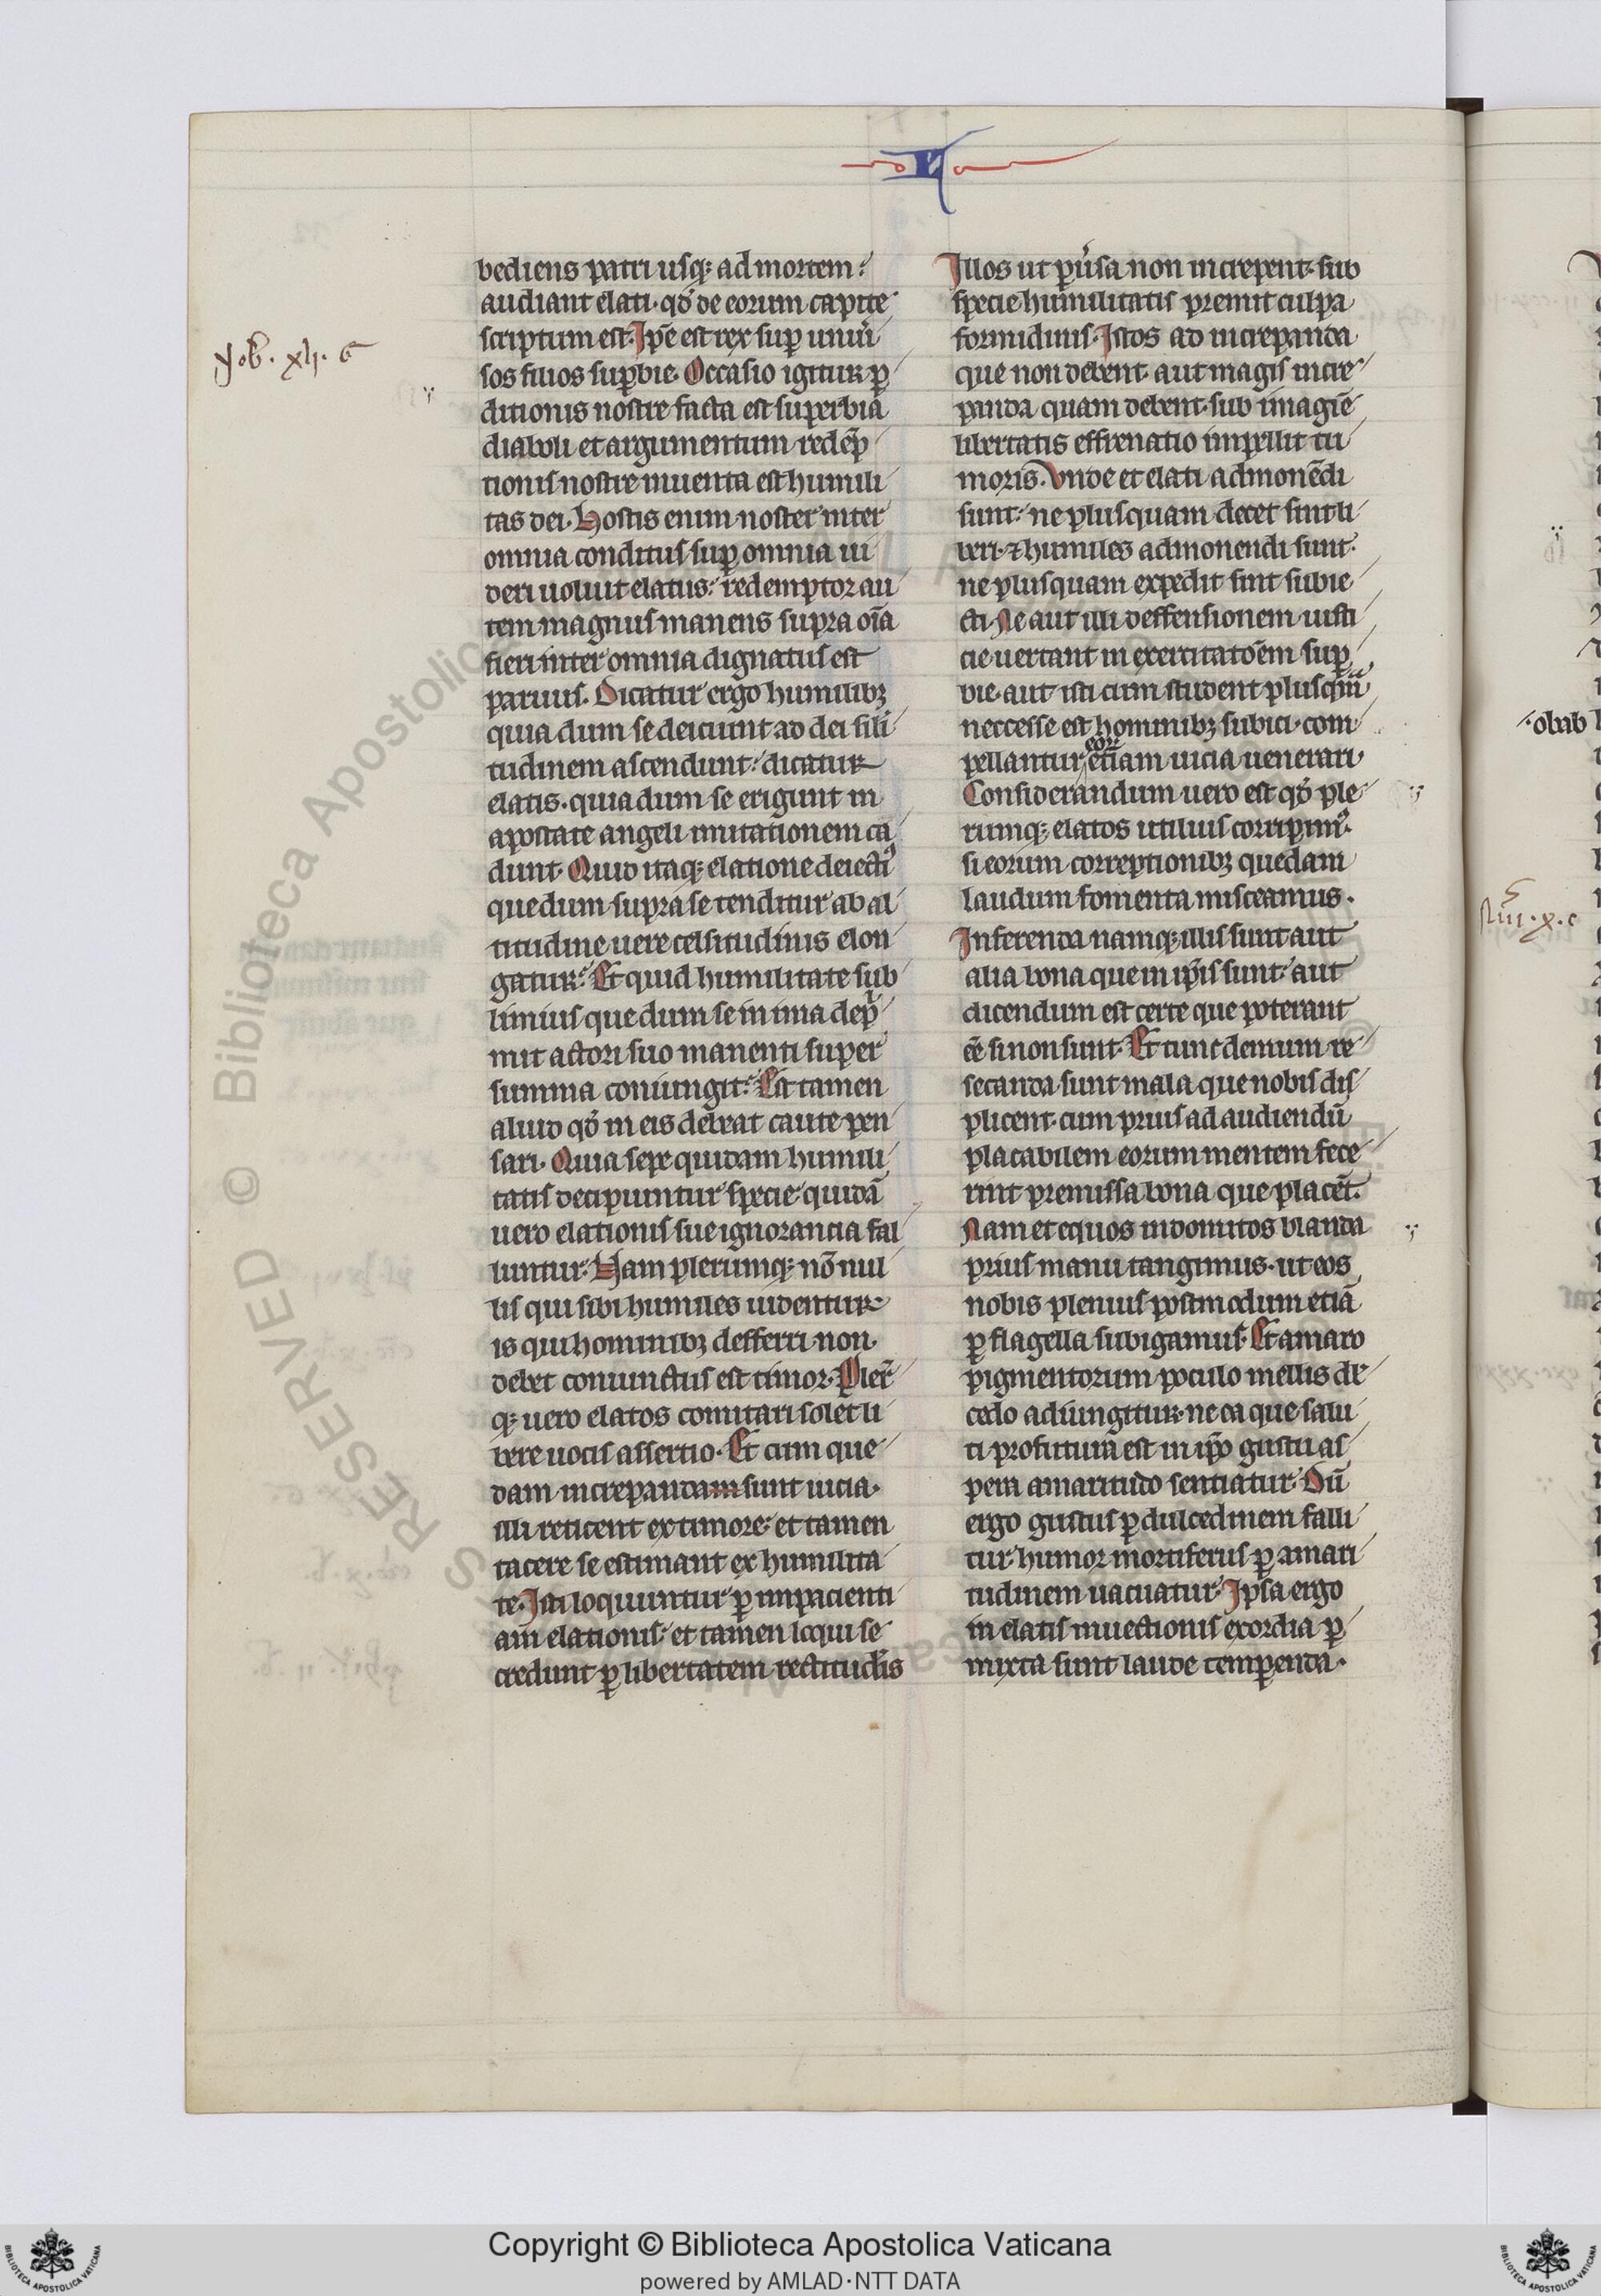 bediens patri usq; ad mortem?
audiant elati· qđ de eorum capite
scriptum est. Ip̄e est rex sup̱ uniū
sos filios sup̱bie. Occasio igitur p̱
ditionis nostre facta est superbia
diaboli et argumentum redēp
tionis nostre inuenta est humili
tas dei. Hostis enim noster inter
omnia conditus sup̱ omnia ui
deri uoluit elatus: redemptor au
tem magnus manens supra oīa
fieri inter omnia dignatus est
paruus. Dicatur ergo humilibꝫ
quia dum se deiciunt ad dei sili
tudinem ascendunt: dicatur
elatis· quia dum se erigunt in
apostate angeli imitationem ca
dunt. Quid itaq; elatione deiectiꝰ
que dum supra se tenditur ab al
titudine uere celsitudinis elon
gatur: Et quid humilitate sub
limius que dum se in ima dep̄
mit actori suo manenti super
summa coniungit: Est tamen
aliud qđ in eis debeat caute pen
sari. Quia sepe quidam humili
tatis decipiuntur specie quidā
uero elationis sue ignorancia fal
luntur. Nam plerumq; nō nul
lis qui sibi humiles uidentur
is qui hominibꝫ defferri non
debet coniunctus est timor. Pler̄
q; uero elatos comitari solet li
bere uocis assertio. Et cum que
dam increpandam sunt uicia·
illi reticent ex timore: et tamen
tacere se estimant ex humilita
te. Isti loquuntur p̱ impacienti
am elationis: et tamen loqui se
credunt p̱ libertatem rectitudīs
Illos ut p̱uersa non increpent· sub
specie humilitatis premit culpa
formidinis. Istos ad increpanda
que non debent aut magis incre
panda quam debent· sub imagīe
libertatis effrenatio impellit tu
moris. Vnde et elati admonēdi
sunt: ne plus quam decet sint li
beri· ⁊ humiles admonendi sunt
ne plus quam expedit sint subie
cti. Ne aut illi deffensionem iusti
cie uertant in exercitatōem sup̱
bie· aut isti cum student plus qm̄
neccesse est hominibꝫ subici· com
eoꝝ
pellantur etiam uicia uenerari·
Considerandum uero est qđ ple
rumq; elatos utilius corripimꝰ·
si eorum correptionibꝫ quedam
laudum fomenta misceamus·
Inferenda namq; illis sunt aut
alia bona que in ip̄is sunt: aut
dicendum est certe que poterant
eē si non sunt. Et tunc demum re
secanda sunt mala que nobis dis
plicent· cum prius ad audiendū
placabilem eorum mentem fece
rint premissa bona que placēt.
Nam et equos indomitos blanda
prius manu tangimus· ut eos
nobis plenius postmodum etiā
p̱ flagella subigamus. Et amaro
pigmentorum poculo mellis dl'
cedo adiungitur· ne ea que salu
ti profutura est in ip̄o gustu as
pera amaritudo sentiatur. Dū
ergo gustus p̱ dulcedinem falli
tur· humor mortiferus p̱ amari
tudinem uacuatur. Ipsa ergo
in elatis inuectionis exordia p̱
mixta sunt laude temp̱enda·
Job. xlj. G
Copyright © Biblioteca Apostolica Vaticana
powered by AMLAD·NTT DATA